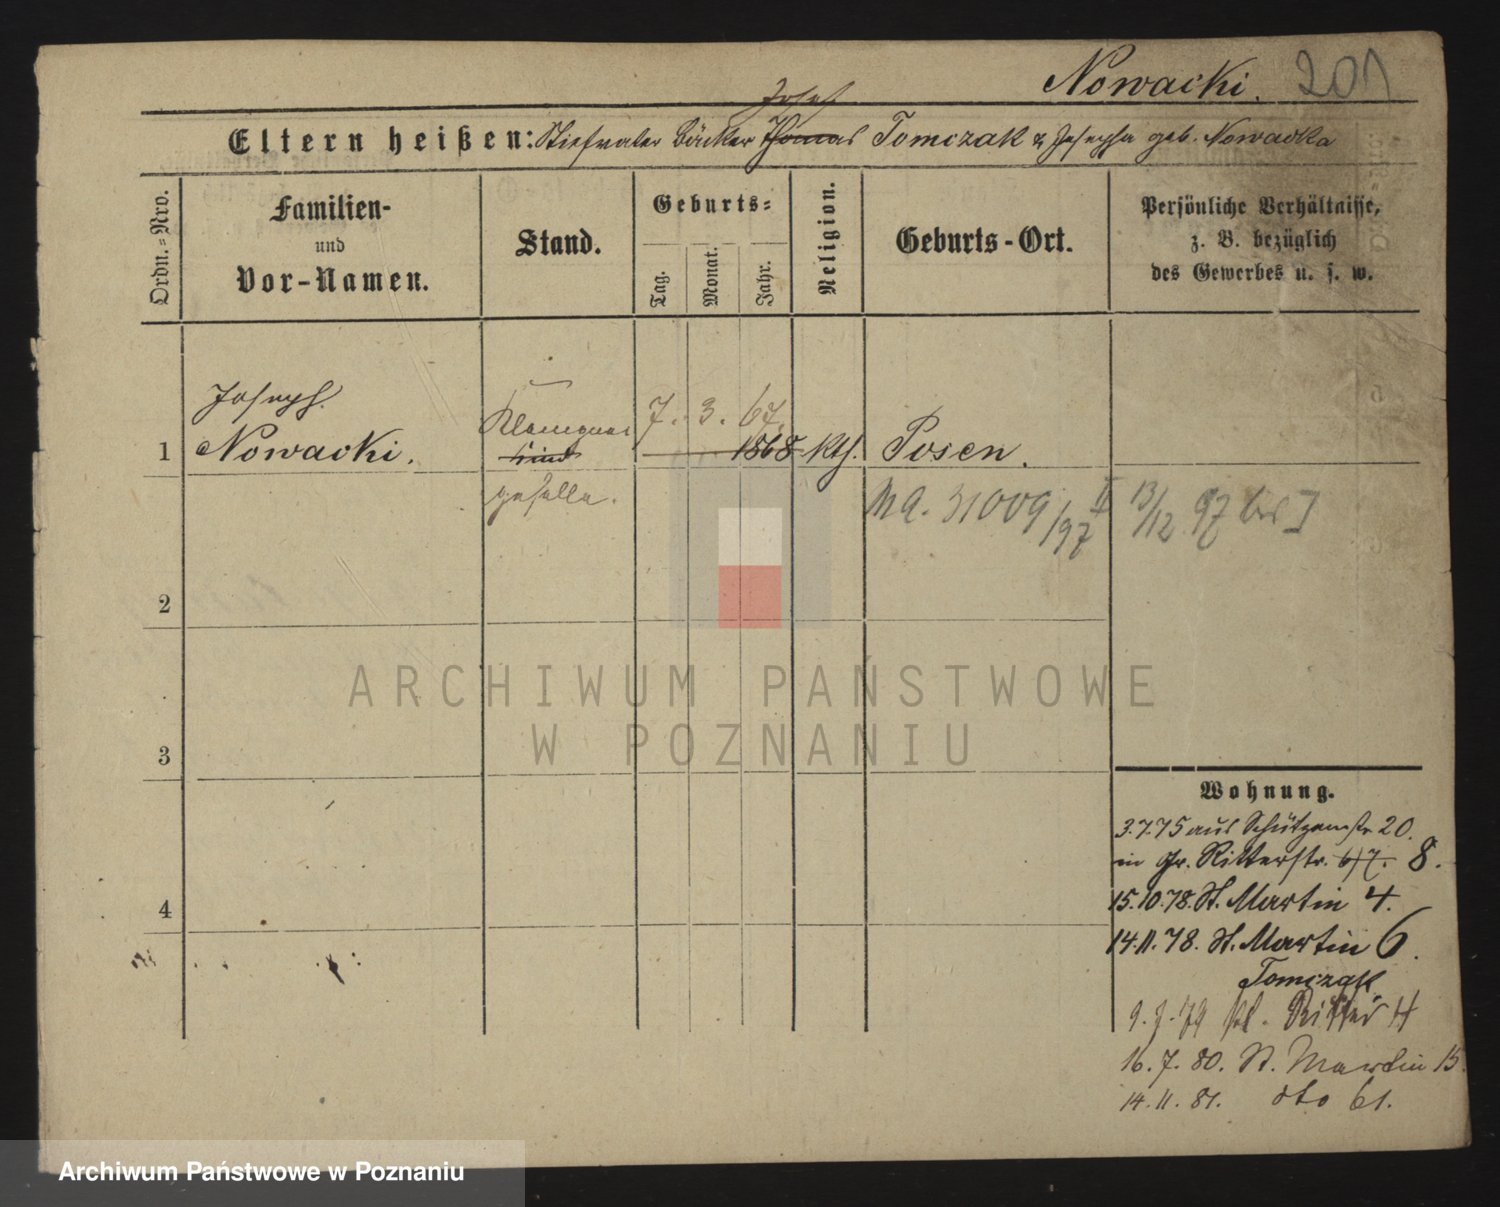 Nowacki. 201
Josef
Eltern heißen: Stiefvater Bäcker Thomas Tomczak & Josepha geb. Nowacka
Ordn.=Nro.
Familien-
und
Vor-Namen.
Stand.
Geburts=
Tag.
Monat.
Jahr.
Religion.
Geburts-Ort.
Persönliche Verhältnisse,
z. B. bezüglich
des Gewerbes u. s. w.
Joseph.
7. 3. 67.
Klempner
1 Nowacki. Kind 1868 kth. Posen.
geselle.
MA. 31009/97 II 13/12 97
2
3
4
Wohnung.
3.7.75 aus Schützenstr 20.
in Gr. Ritterstr. 8.
15.10.78. St. Martin 4.
14.11.78. St. Martin 6.
Tomczak
9.7.79 Ritter
16.7.80. St. Martin 15.
14.11.81. dto 61.
ARCHIWUM PAŃSTWOWE
W POZNANIU
Archiwum Państwowe w Poznaniu